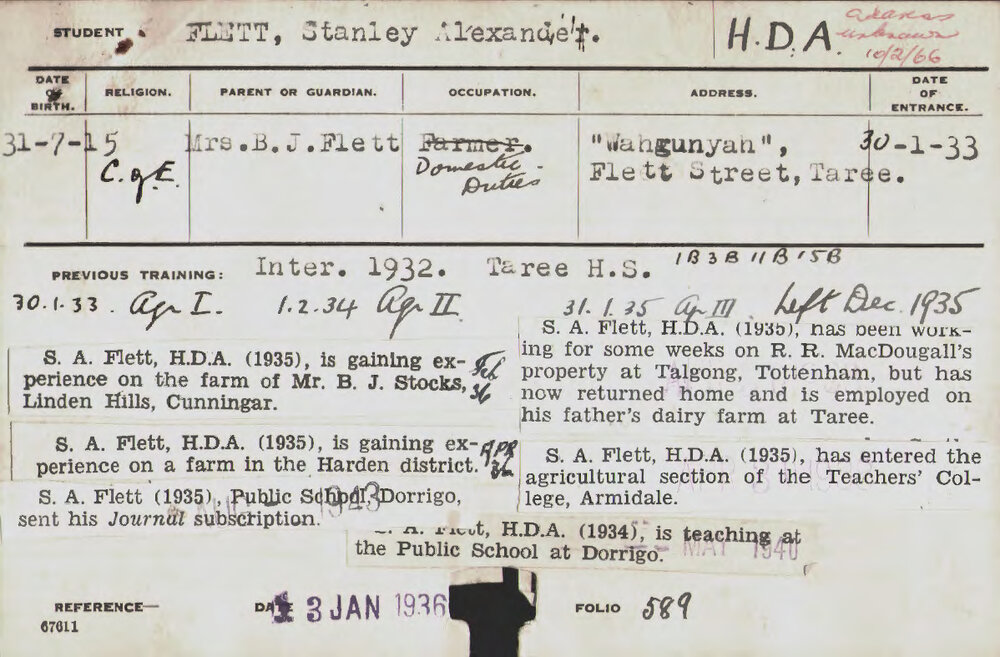 STUDENT FLETT, Stanley Alexander. H.D.A. address unknown 10/2/66
DATE OF BIRTH. RELIGION. PARENT OR GUARDIAN. OCCUPATION. ADDRESS. DATE OF ENTRANCE.
31-7-15 Mrs.B.J.Flett Farmer. "Wahgunyah", 30-1-33
C. of E. Domestic Duties Flett Street, Taree.
PREVIOUS TRAINING: Inter. 1932. Taree H.S. 1B 3B 11B 15B
30.1.33. Agr I. 1.2.34 Agr II 31.1.35 Agr III. Left Dec. 1935
S. A. Flett, H.D.A. (1935), is gaining ex-
perience on the farm of Mr. B. J. Stocks,
Linden Hills, Cunningar.
Feb 36
S. A. Flett, H.D.A. (1935), has been work-
ing for some weeks on R. R. MacDougall's
property at Talgong, Tottenham, but has
now returned home and is employed on
his father's dairy farm at Taree.
S. A. Flett, H.D.A. (1935), is gaining ex-
perience on a farm in the Harden district.
APR 36
S. A. Flett, H.D.A. (1935), has entered the
agricultural section of the Teachers' Col-
lege, Armidale.
S. A. Flett (1935), Public School, Dorrigo,
sent his Journal subscription.
1943
A. Flett, H.D.A. (1934), is teaching at
the Public School at Dorrigo.
MAY 1940
REFERENCE— DATE 3 JAN 1936 FOLIO 589
67611